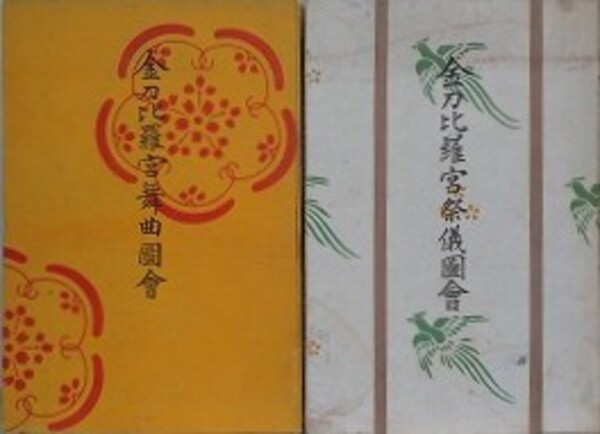 金刀比羅宮舞曲圖會
金刀比羅宮祭儀圖會